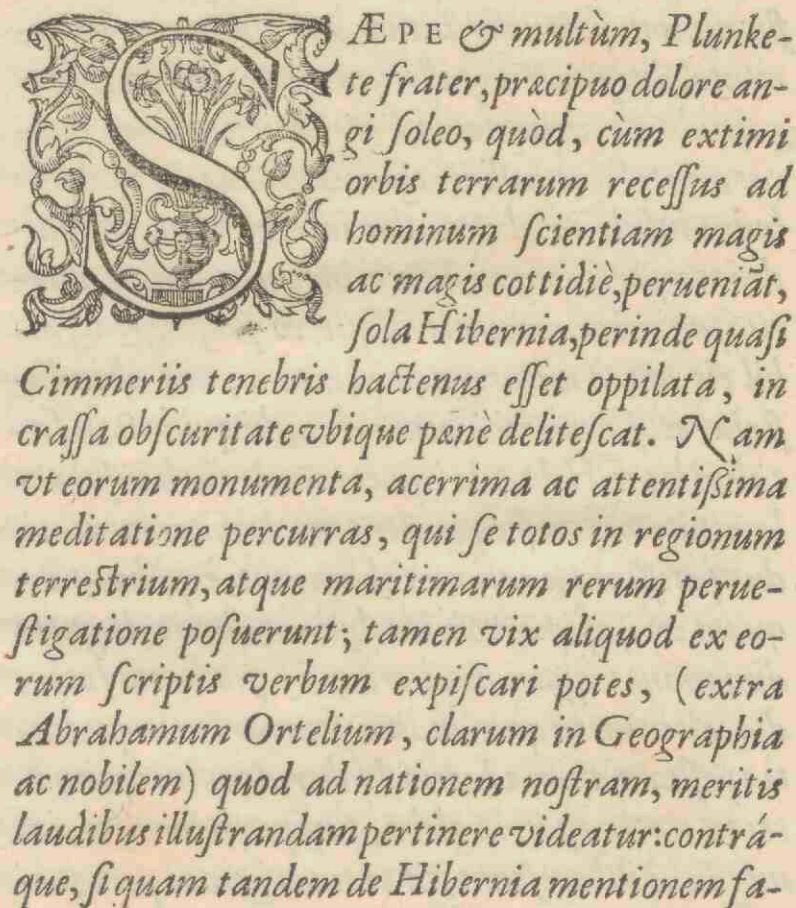 SÆPE & multùm, Plunke-
te frater, præcipuo dolore an-
gi ſoleo, quòd, cùm extimi
orbis terrarum receſſus ad
hominum ſcientiam magis
ac magis cottidiè, perueniāt,
ſola Hibernia, perinde quaſi
Cimmeriis tenebris hactenus eſſet oppilata, in
craſſa obſcuritate vbique pænè deliteſcat. Nam
vt eorum monumenta, acerrima ac attentiſsima
meditatione percurras, qui ſe totos in regionum
terreſtrium, atque maritimarum rerum perue-
ſtigatione poſuerunt; tamen vix aliquod ex eo-
rum ſcriptis verbum expiſcari potes, (extra
Abrahamum Ortelium, clarum in Geographia
ac nobilem) quod ad nationem noſtram, meritis
laudibus illuſtrandam pertinere videatur: contrá-
que, ſi quam tandem de Hibernia mentionem fa-